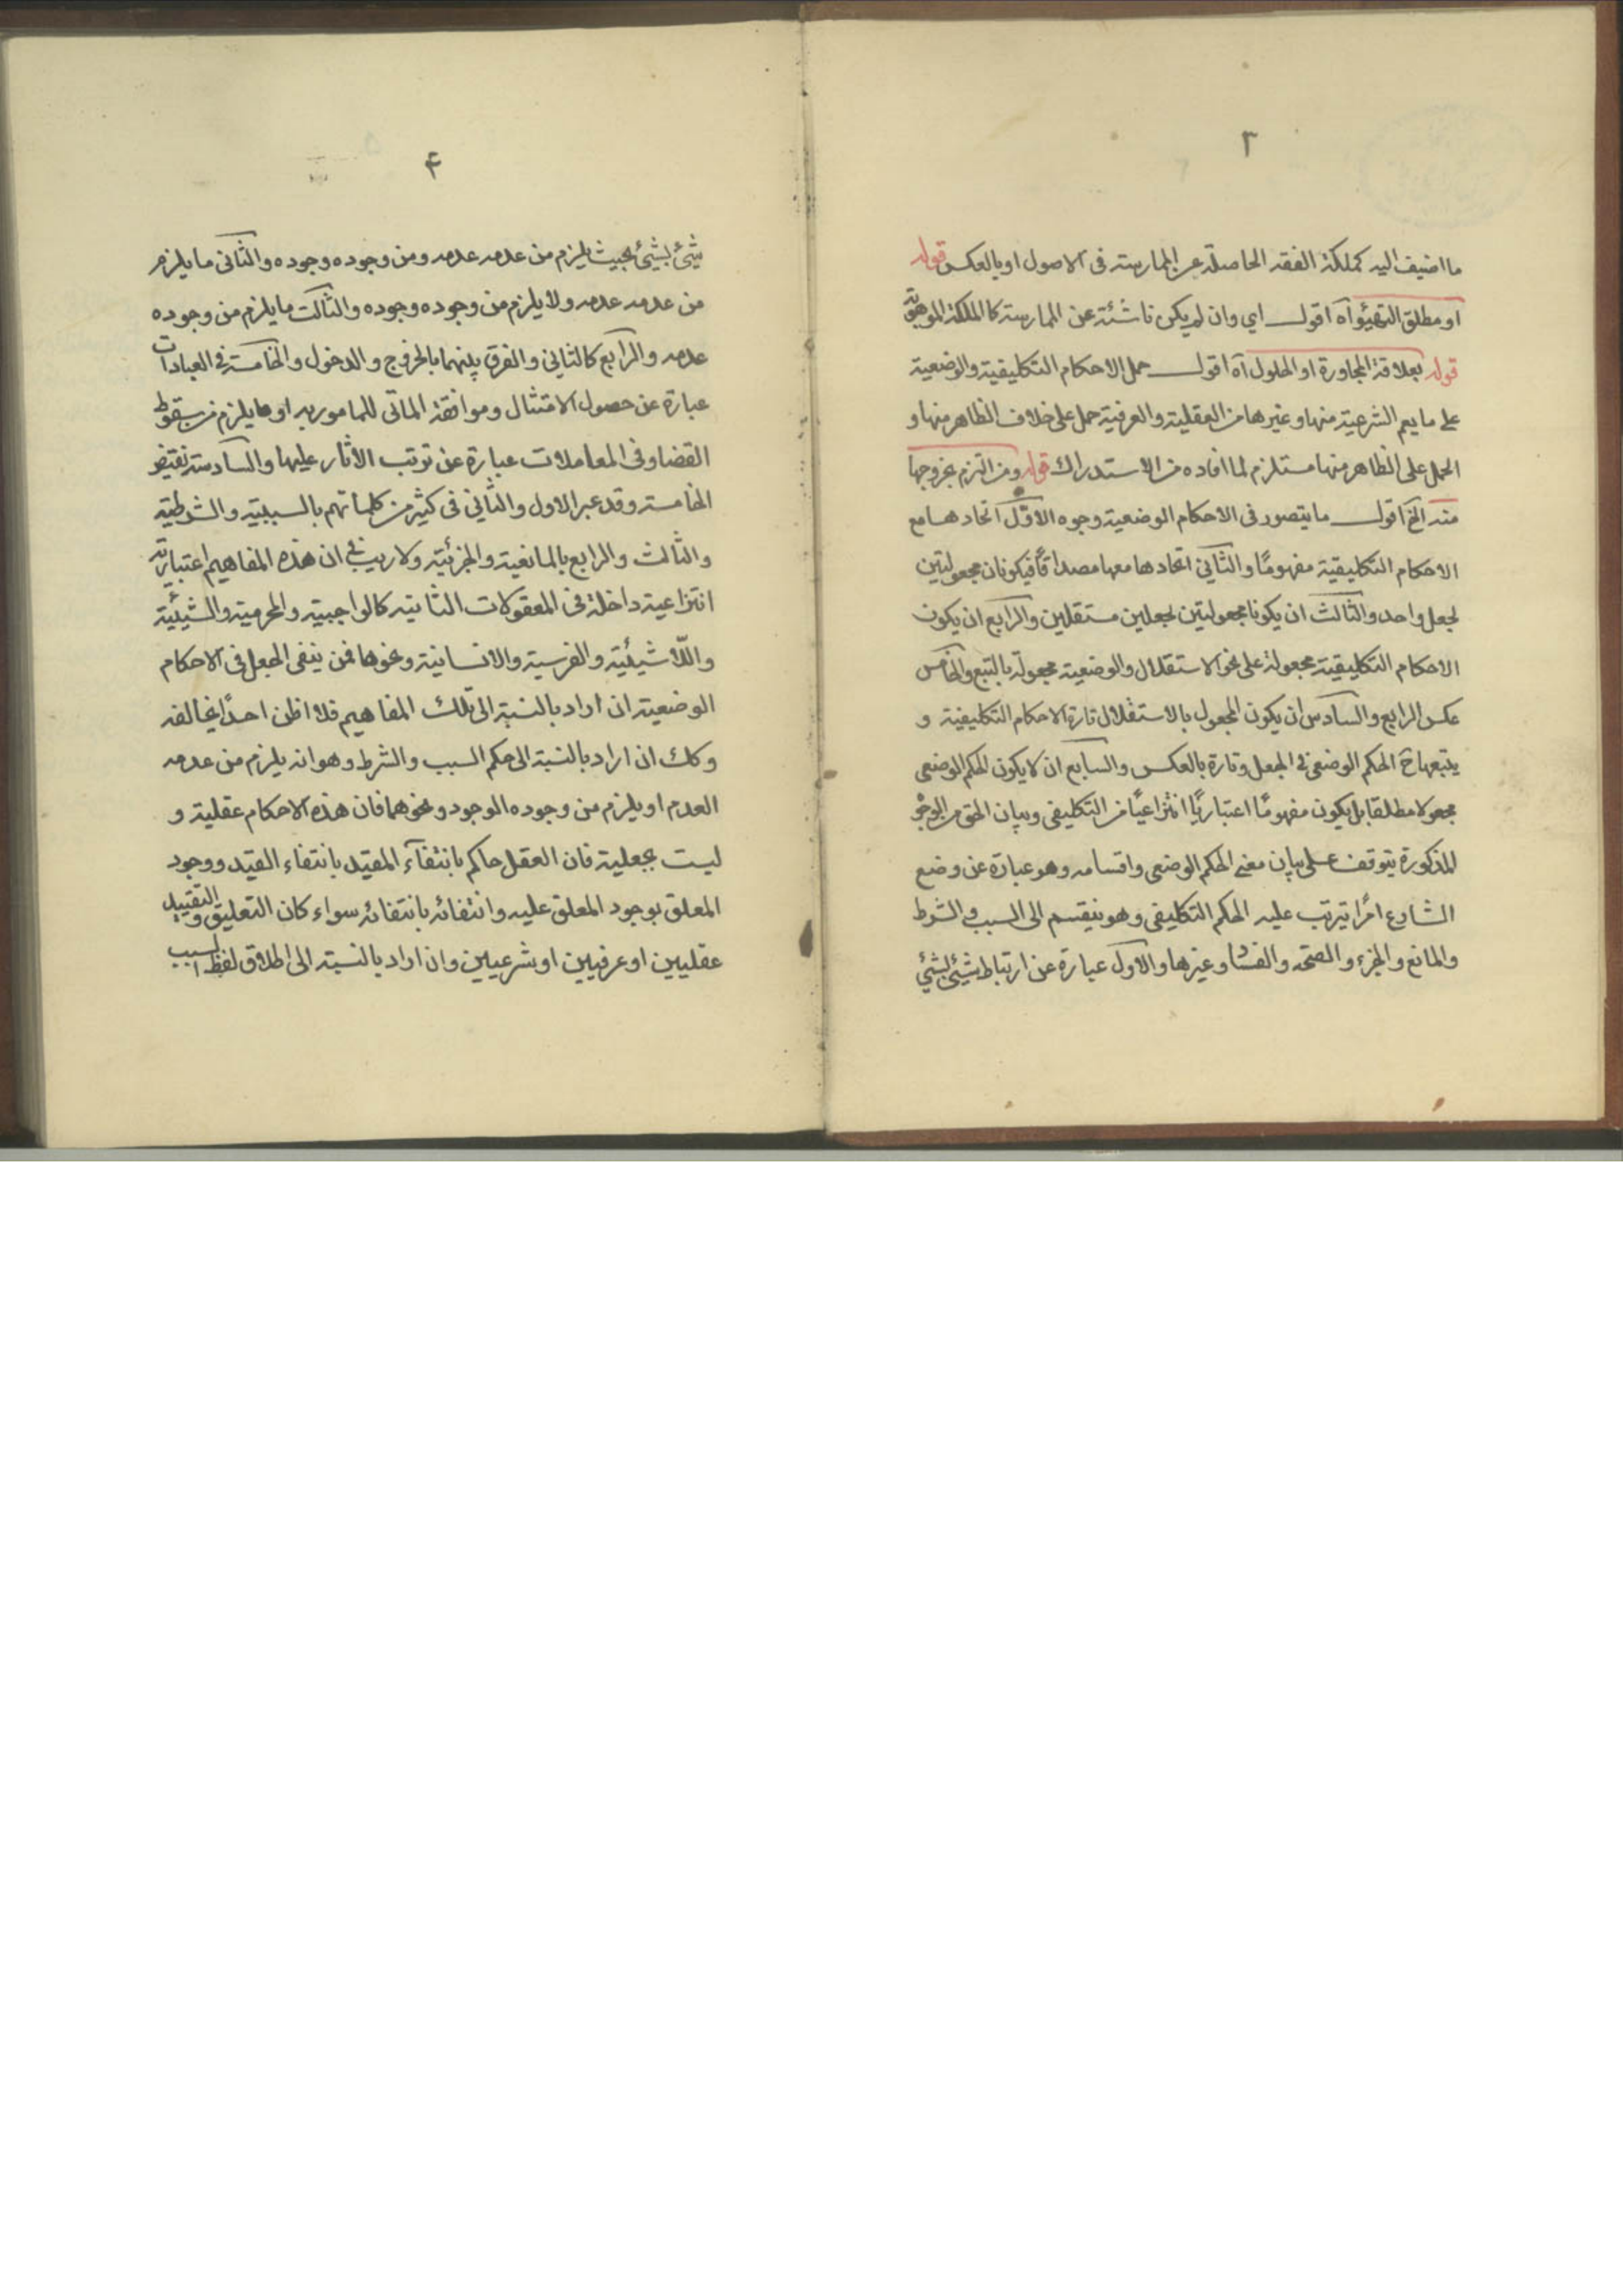 ٣
ما اضيف اليه كملكة الفقه الحاصلة عن الممارسة فى الاصول او بالعكس قوله
او مطلق التهيئو اه اقول اي وان لم يكن ناشئة عن الممارسة كالملكة الموهوبة
قوله بعلاقة المجاورة او الحلول اه اقول حمل الاحكام التكليفية والوضعية
على ما يعم الشرعية منها وغيرها من العقلية والعرفية حمل على خلاف الظاهر منها و
الحمل على الظاهر منها مستلزم لما افاده من الاستدراك قوله ومن التزم بخروجها
منه الخ اقول ما يتصور فى الاحكام الوضعية وجوه الاول اتحادها مع
الاحكام التكليفية مفهومًا والثاني اتحادها معها مصداقًا فيكونان مجعولتين
لجعل واحد والثالث ان يكونا مجعولتين لجعلين مستقلين والرابع ان يكون
الاحكام التكليفية مجعولة على نحو الاستقلال والوضعية مجعولة بالتبع والخامس
عكس الرابع والسادس ان يكون المجعول بالاستقلال تارة الاحكام التكليفية و
يتبعها ح الحكم الوضعى فى الجعل وتارة بالعكس والسابع ان لا يكون الحكم الوضعى
مجعولا مطلقا بل يكون مفهومًا اعتباريًا انتزاعيًا من التكليفى وبيان الحق من الوجوه
المذكورة يتوقف على بيان معنى الحكم الوضعى واقسامه وهو عبارة عن وضع
الشارع امرًا يترتب عليه الحكم التكليفى وهو ينقسم الى السبب والشرط
والمانع والجزء والصحة والفساد وغيرها والاول عبارة عن ارتباط شيئ بشيئ
۴
شيئ بشيئ بحيث يلزم من عدمه عدمه ومن وجوده وجوده والثانى ما يلزم
من عدمه عدمه ولا يلزم من وجوده وجوده والثالث ما يلزم من وجوده
عدمه والرابع كالثاني والفرق بينهما بالخروج والدخول والخامسة فى العبادات
عبارة عن حصول الامتثال وموافقة الماتى للمامور به او ما يلزم من سقوط
القضا وفى المعاملات عبارة عن ترتب الاثار عليها والسادسة نقيض
الخامسة وقد عبر الاول والثاني فى كثير من كلماتهم بالسببية والشرطية
والثالث والرابع بالمانعية والجزئية ولا ريب فى ان هذه المفاهيم اعتبارية
انتزاعية داخلة فى المعقولات الثانية كالواجبية والمحرمية والشيئية
واللاشيئية والفرسية والانسانية ونحوها فمن ينفى الجعل فى الاحكام
الوضعية ان اراد بالنسبة الى تلك المفاهيم فلا اظن احدًا يخالفه
وكك ان اراد بالنسبة الى حكم السبب والشرط وهو انه يلزم من عدمه
العدم او يلزم من وجوده الوجود ونحوهما فان هذه الاحكام عقلية و
ليست بجعلية فان العقل حاكم بانتفاء المقيد بانتفاء القيد ووجود
المعلق بوجود المعلق عليه وانتفائه بانتفائه سواء كان التعليق والتقييد
عقليين او عرفيين او شرعيين وان اراد بالنسبة الى اطلاق لفظ السبب